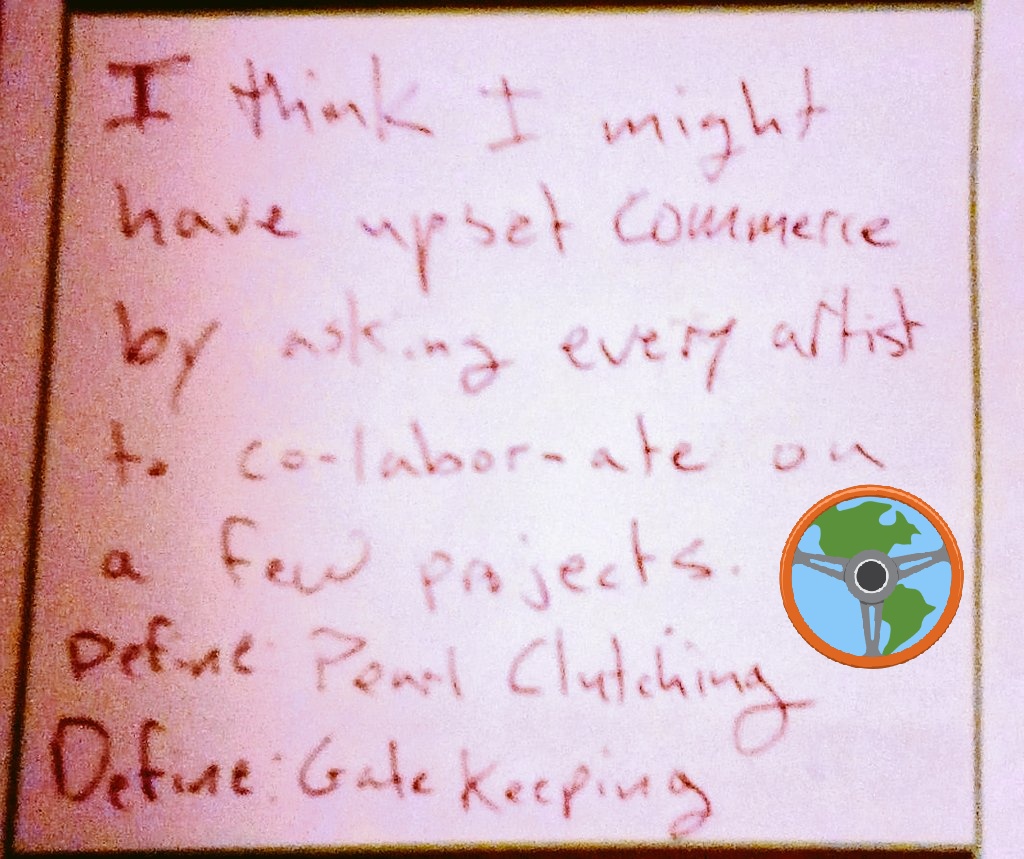 I think I might
have upset commerce
by asking every artist
to co-labor-ate on
a few projects.
Define: Pearl Clutching
Define: Gate Keeping